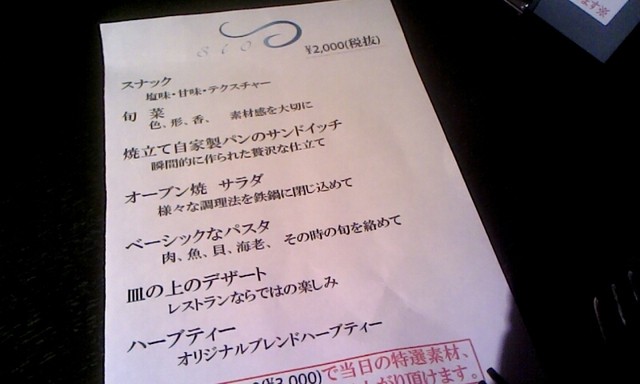 ¥2,000(税抜)
スナック
塩味・甘味・テクスチャー
旬 菜
色、形、香、 素材感を大切に
焼立て自家製パンのサンドイッチ
瞬間的に作られた贅沢な仕立て
オーブン焼 サラダ
様々な調理法を鉄鍋に閉じ込めて
ベーシックなパスタ
肉、魚、貝、海老、 その時の旬を絡めて
皿の上のデザート
レストランならではの楽しみ
ハーブティー
オリジナルブレンドハーブティー
(¥3,000)で当日の特選素材、
がり頂けます。
ます※